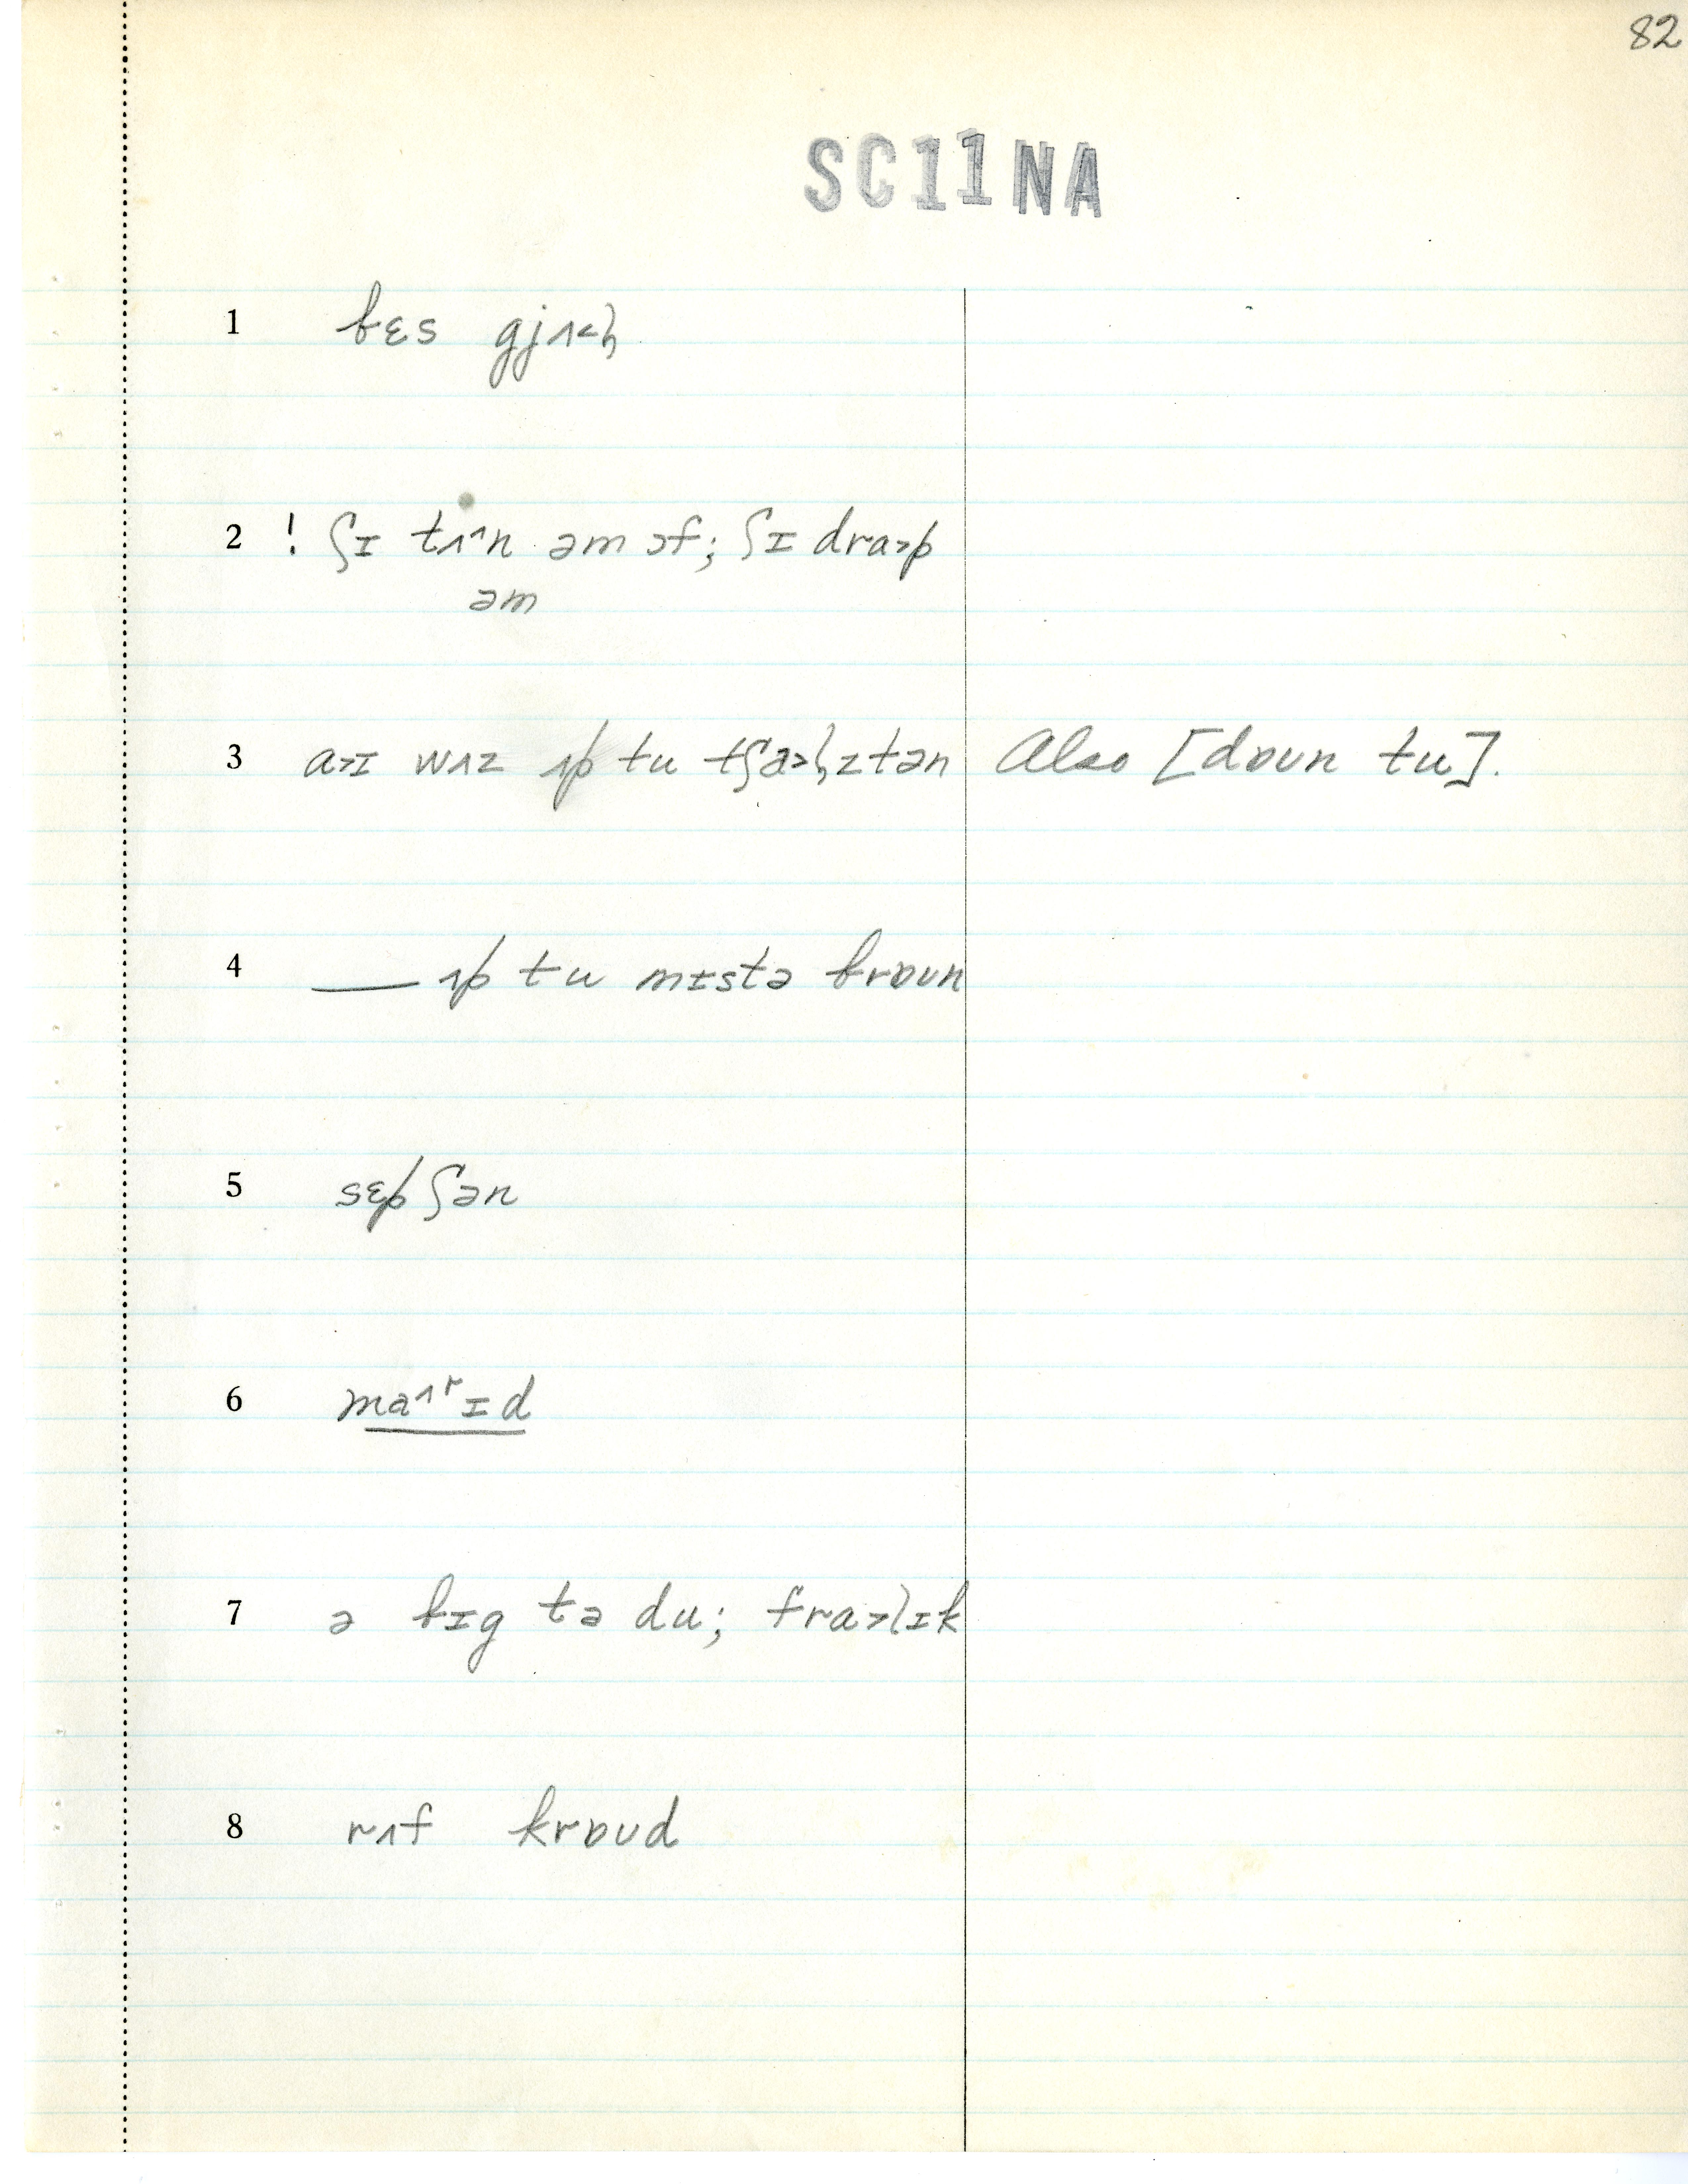 82
SC11NA
1 bɛs gjʌ˂ḷ
2 ! ʃɪ tʌ^n əm ɔf; ʃɪ dra˃p
əm
3 a˃ɪ wʌz ʌp tu tʃa˃ḷztən Also [dɒʊn tu].
4 — ʌp tu mɪstə brɒʊn
5 sɛpʃən
6 ma^rɪd
7 ə bɪg tə du; fra˃lɪk
8 rʌf krɒʊd